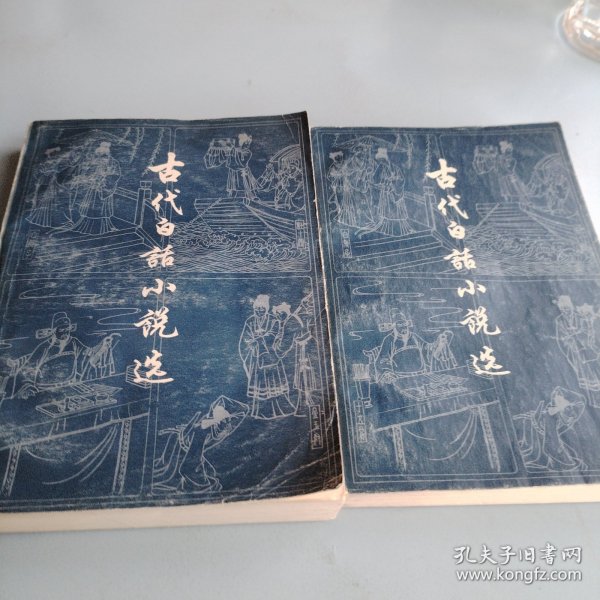 古代白话小说选
古代白话小说选
孔夫子旧书网
www.kongfz.com